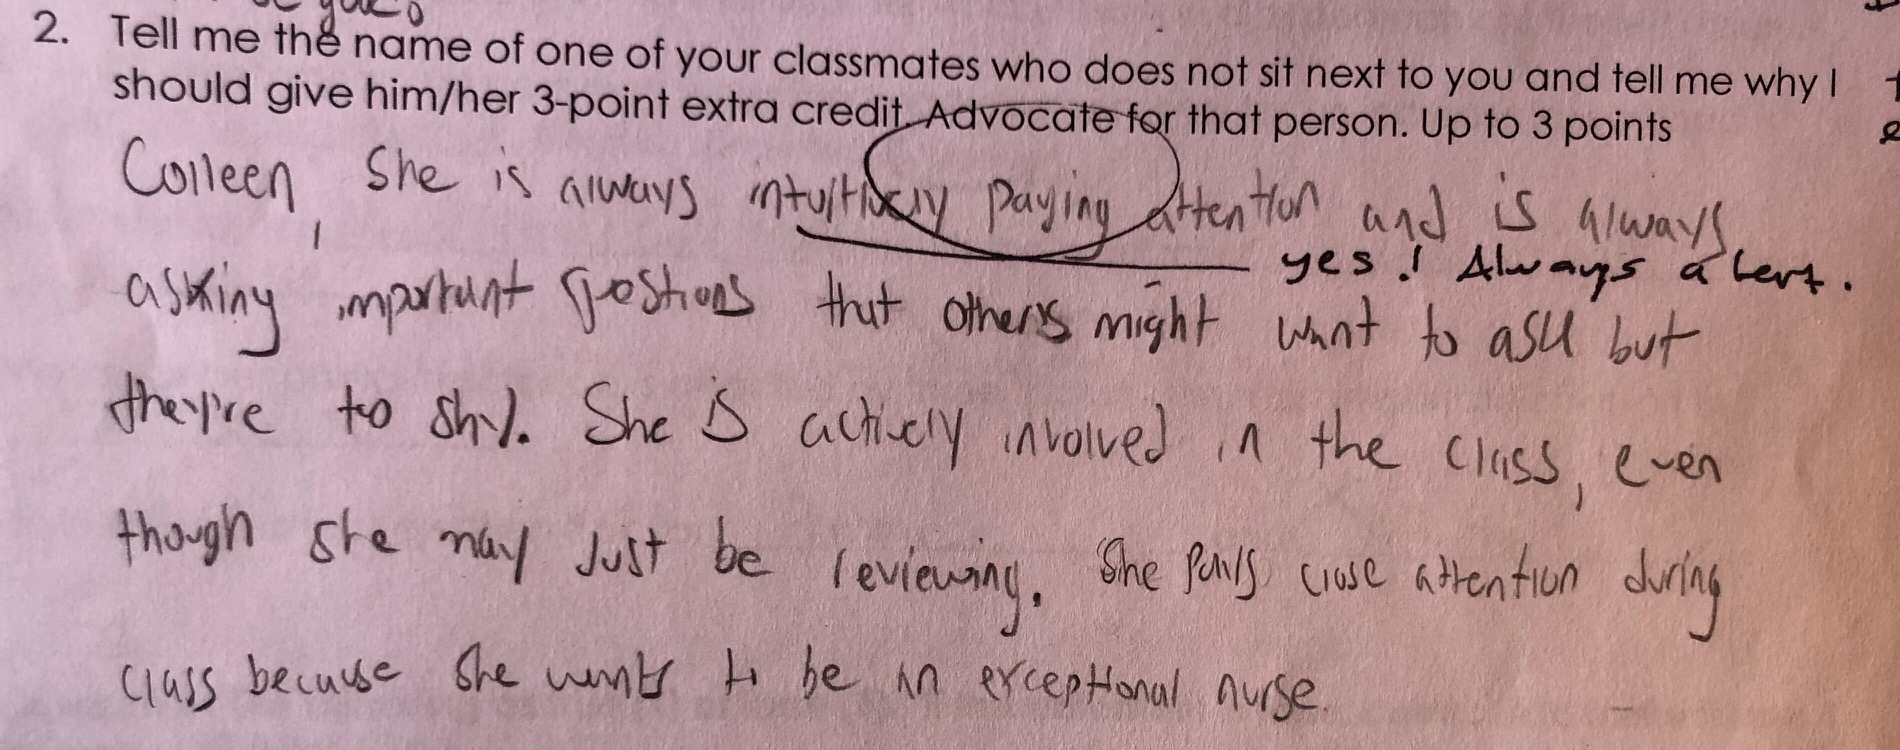 2. Tell me the name of one of your classmates who does not sit next to you and tell me why I
should give him/her 3-point extra credit. Advocate for that person. Up to 3 points
Colleen, She is always intuitively paying attention and is always
yes! Always alert.
asking important qestions that others might want to ask but
they're to shy. She is actively involved in the class, even
though she may Just be reviewing. She pays close attention during
class because she wants to be an exceptional nurse.